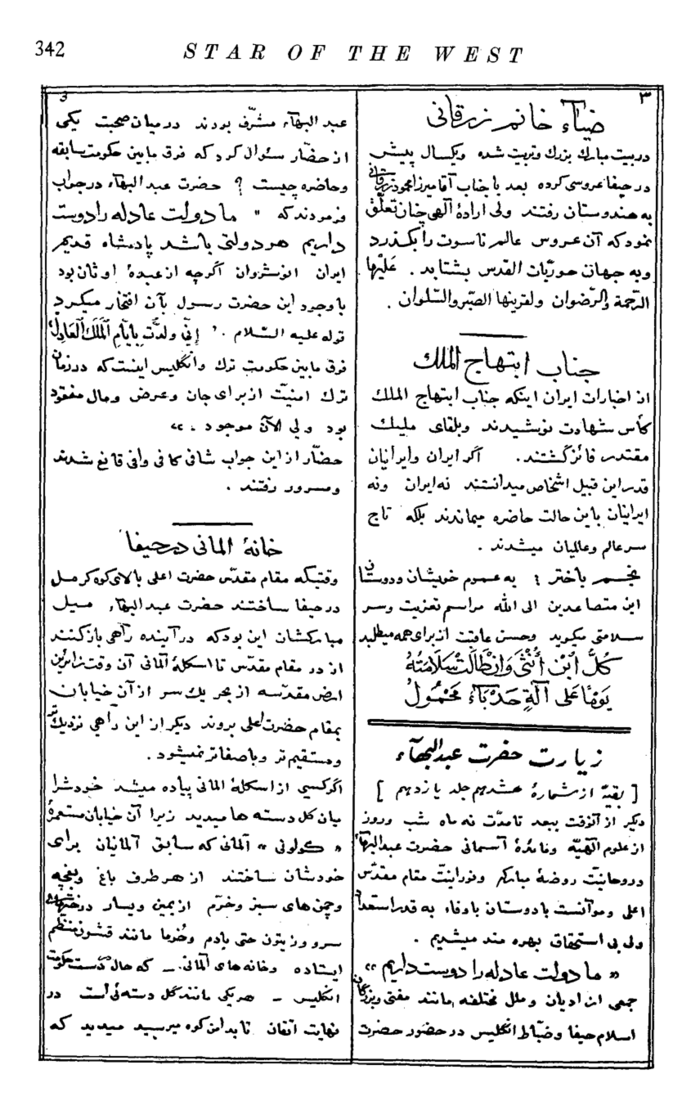 342
STAR OF THE WEST
٣
ضیاء خانم زرقانی
در بیت مبارک بزرگ و تربیت شده و یکسال پیش
در حیفا عروسی کرده بعد با جناب آقا میرزا محمود زرقانی
به هندوستان رفتند ولی ارادهٔ الهی چنان تعلّق
نمود که آن عروس عالم ناسوت را بگذرد
و به جهان حوریّات القدس بشتابد . علیها
الرّحمة و الرّضوان و لقرینها الصّبر و السّلوان .
جناب ابتهاج الملک
از اخبارات ایران اینکه جناب ابتهاج الملک
کأس شهادت نوشیدند و بلقای ملیک
مقتدر فائز گشتند . اگر ایران و ایرانیان
قدر این قبیل اشخاص میدانستند نه ایران و نه
ایرانیان باین حالت حاضره میماندند بلکه تاج
سر عالم و عالمیان میشدند .
نجم باختر : به عموم خویشان و دوستان
این متصاعدین الی الله مراسم تعزیت و سر
سلامتی میگوید و حسن عاقبت از برای همه میطلبد
کُلُّ ابْنِ أُنْثَی وَ اِنْ طَالَتْ سَلَامَتُهُ
یَوْمًا عَلَی آلَةٍ حَدْبَاءَ مَحْمُولُ
زیارت حضرت عبدالبهآء
[ بقیّهٔ از شمارهٔ هشدهم جلد یازدهم ]
دیگر از آنوقت ببعد تا مدّت نه ماه شب و روز
از علوم الهیّه و مائدهٔ آسمانی حضرت عبدالبهآء
و روحانیّت روضهٔ مبارکه و نورانیّت مقام مقدّس
اعلی و موآنست با دوستان باوفاء به قدر استعداد
ولی بی استحقاق بهره مند میشدیم .
« ما دولت عادله را دوست داریم »
جمعی از ادیان و ملل مختلفه مانند مفتی و بزرگان
اسلام حیفا و ضبّاط انگلیس در حضور حضرت
عبد البهآء مشرّف بودند در میان صحبت یکی
از حضّار سئوال کرد که فرق مابین حکومت سابقه
و حاضره چیست ؟ حضرت عبد البهآء در جواب
فرمودند که " ما دولت عادله را دوست
داریم هر دولتی باشد پادشاه قدیم
ایران انوشروان اگرچه از عبدهٔ اوثان بود
با وجود این حضرت رسول بآن افتخار میکرد
قوله علیه السّلام . ' إنّی ولدتُ بأیّام المَلِکِ العادِل '
فرق مابین حکومت ترک و انگلیس اینست که در زمان
ترک امنیّت از برای جان و عرض و مال مفقود
بود ولی الآن موجود . "
حضّار از این جواب شافی کافی وافی قانع شدند
و مسرور رفتند .
خانهٔ المانی در حیفا
وقتیکه مقام مقدّس حضرت اعلی بالای کوه کرمل
در حیفا ساختند حضرت عبد البهآء میل
مبارکشان این بود که در آینده راهی باز کنند
از در مقام مقدّس تا اسکلهٔ آلمانی آن وقت زائرین
ارض مقدّسه از بحر یک سر از آن خیابان
بمقام حضرت اعلی بروند دیگر از این راهی نزدیک تر
و مستقیم تر و باصفاتر نمیشود .
اگر کسی از اسکلهٔ المانی پیاده میشد خود را
میان گل دسته ها میدید زیرا آن خیابان مستعمرهٔ
« کولونی » آلمانی که سابق آلمانیان برای
خودشان ساختند از هر طرف باغ و باغچه
و چمن های سبز و خرّم از یمین و یسار درختهای
سرو و زیتون حتی بادم و خُرما مانند قشون منتظم
ایستاده و خانه های آلمانی — که حال دست حکومت
انگلیس — هر یکی مانند گل دسته ئی است در
نهایت اتقان تا بدامن کوه میرسید میدید که